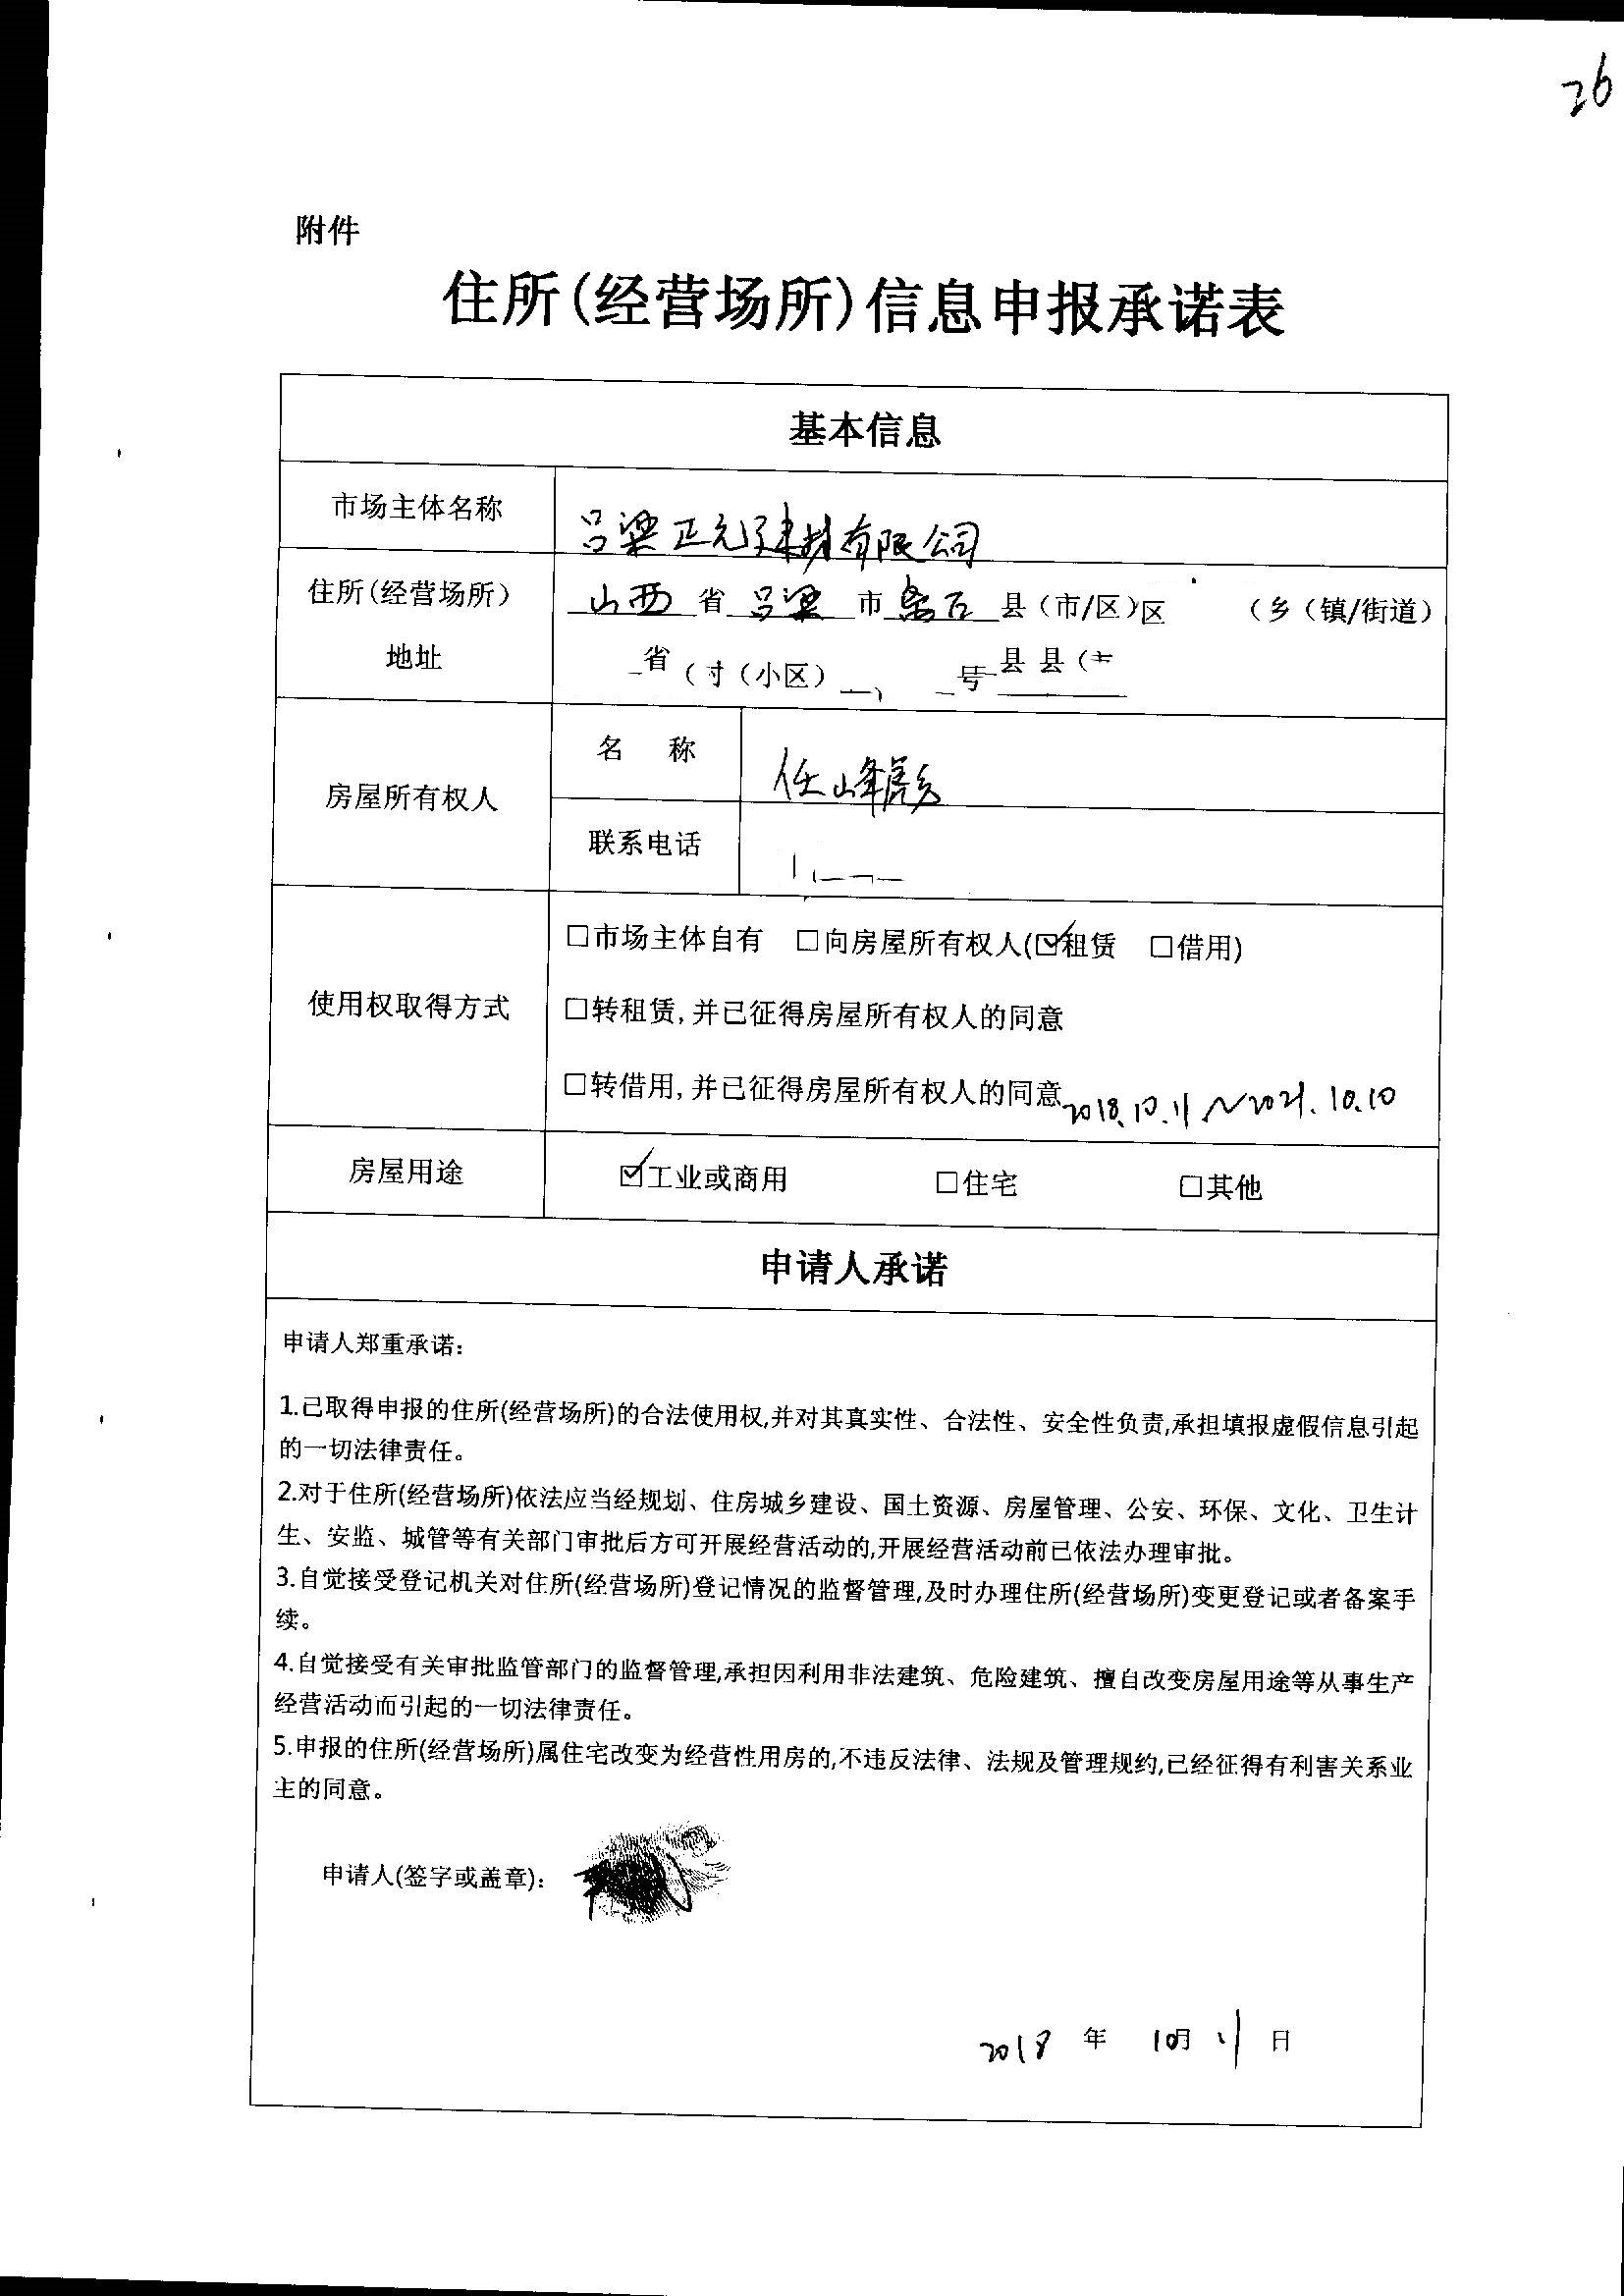 26
附件
住所(经营场所)信息申报承诺表
基本信息
市场主体名称
吕梁正元建材有限公司
住所(经营场所)
地址
山西 省 吕梁 市 离石 县(市/区)区 (乡(镇/街道)
省 (寸(小区) 号 县 县(
房屋所有权人
名 称
任峰彪
联系电话
使用权取得方式
□市场主体自有 □向房屋所有权人(☑租赁 □借用)
□转租赁,并已征得房屋所有权人的同意
□转借用,并已征得房屋所有权人的同意 2018.10.11~2021.10.10
房屋用途
☑工业或商用 □住宅 □其他
申请人承诺
申请人郑重承诺:
1.已取得申报的住所(经营场所)的合法使用权,并对其真实性、合法性、安全性负责,承担填报虚假信息引起
的一切法律责任。
2.对于住所(经营场所)依法应当经规划、住房城乡建设、国土资源、房屋管理、公安、环保、文化、卫生计
生、安监、城管等有关部门审批后方可开展经营活动的,开展经营活动前已依法办理审批。
3.自觉接受登记机关对住所(经营场所)登记情况的监督管理,及时办理住所(经营场所)变更登记或者备案手
续。
4.自觉接受有关审批监管部门的监督管理,承担因利用非法建筑、危险建筑、擅自改变房屋用途等从事生产
经营活动而引起的一切法律责任。
5.申报的住所(经营场所)属住宅改变为经营性用房的,不违反法律、法规及管理规约,已经征得有利害关系业
主的同意。
申请人(签字或盖章):
2018 年 10月 11 日